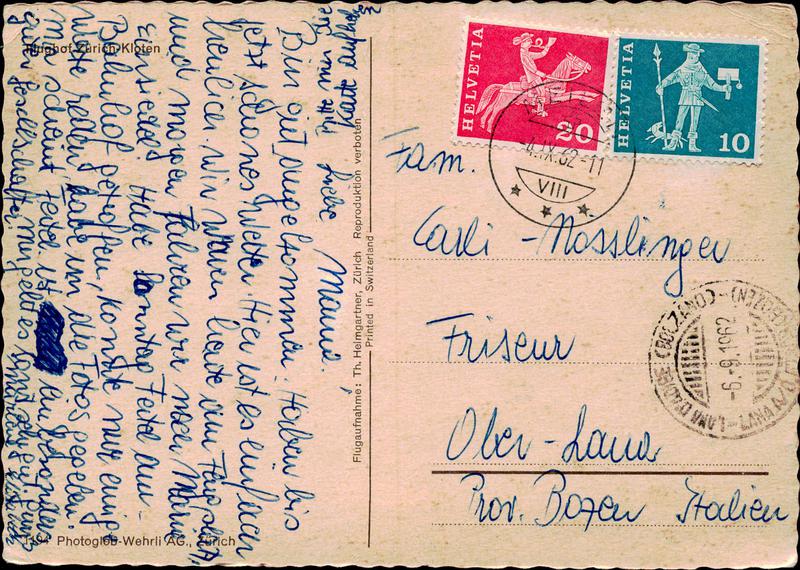 Liebe Mama.
Bin gut angekommen. Haben bis
jetzt schönes Wetter. Hier ist es einfach
herrlich. Wir waren heute am Flugplatz
und morgen fahren wir nach Maria
Einsiedel. Habe Sonntag Feite am
Bahnhof getroffen, konnte nur einige
Worte reden, habe ihm die Fotos gegeben.
Mir scheint, Feite ist ein besonders
guter Gesellschafter. Mir geht es sonst sehr gut
Karte
Flughof Zürich-Kloten
1194 Photoglob-Wehrli AG., Zürich
Flugaufnahme: Th. Heimgartner, Zürich Reproduktion verboten
Printed in Switzerland
HELVETIA
20
HELVETIA
10
4.IX.62-11
VIII
Fam.
Carli - Mosslinger
Friseur
Ober-Lana
Prov. Bozen Italien
LANA D'ADIGE (BOLZANO)
-6.-9.1962
(BOZEN)